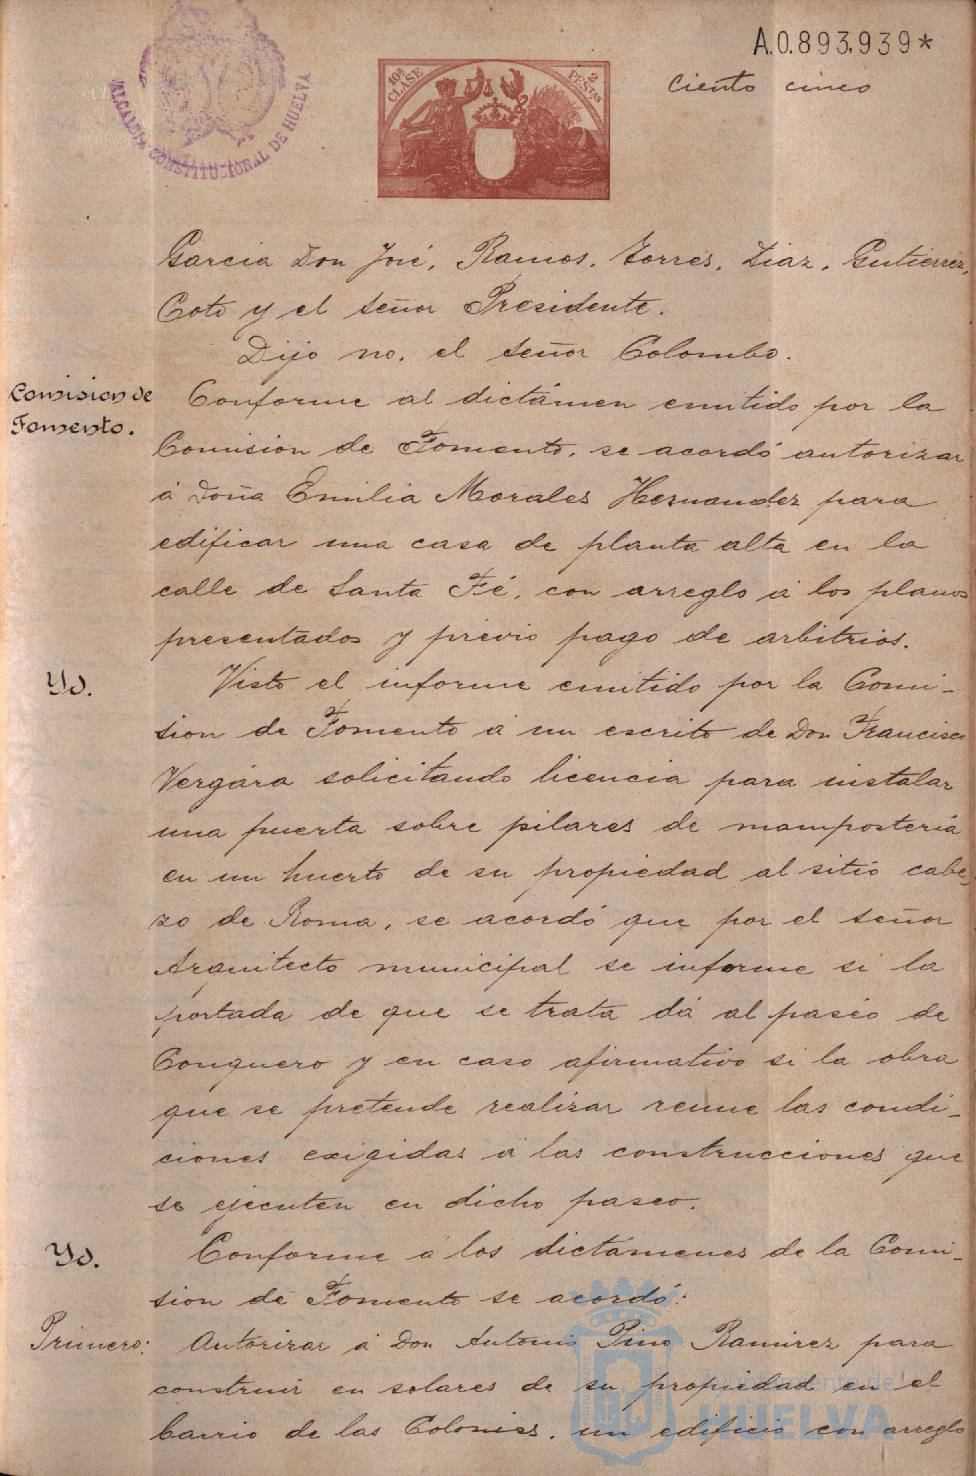 A.0.893,939*
ciento cinco
ALCALDIA CONSTITUCIONAL DE HUELVA
10ª CLASE
2 PESTAS
Garcia Don José, Ramos, Torres, Diaz, Gutierrez,
Coto y el señor Presidente.
Dijo no, el señor Colombo.
Comision de
Fomento.
Conforme al dictámen emitido por la
Comisión de Fomento, se acordó autorizar
á Doña Emilia Morales Hernandez para
edificar una casa de planta alta en la
calle de Santa Fé, con arreglo á los planos
presentados y prévio pago de arbitrios.
Yd.
Visto el informe emitido por la Comi-
sion de Fomento á un escrito de Don Francisco
Vergára solicitando licencia para instalar
una puerta sobre pilares de mampostería
en un huerto de su propiedad al sitio cabe-
zo de Roma, se acordó que por el señor
Arquitecto municipal se informe si la
portada de que se trata dá al paséo de
Conquero y en caso afirmativo si la obra
que se pretende realizar reune las condi-
ciones exigidas á las construcciones que
se ejecuten en dicho paseo.
Yd.
Conforme á los dictámenes de la Comi-
sion de Fomento se acordó:
Primero:
Autorizar á Don Antonio Pino Ramirez para
construir en solares de su propiedad en el
barrio de las Colonias, un edificio con arreglo
Ayuntamiento de
HUELVA